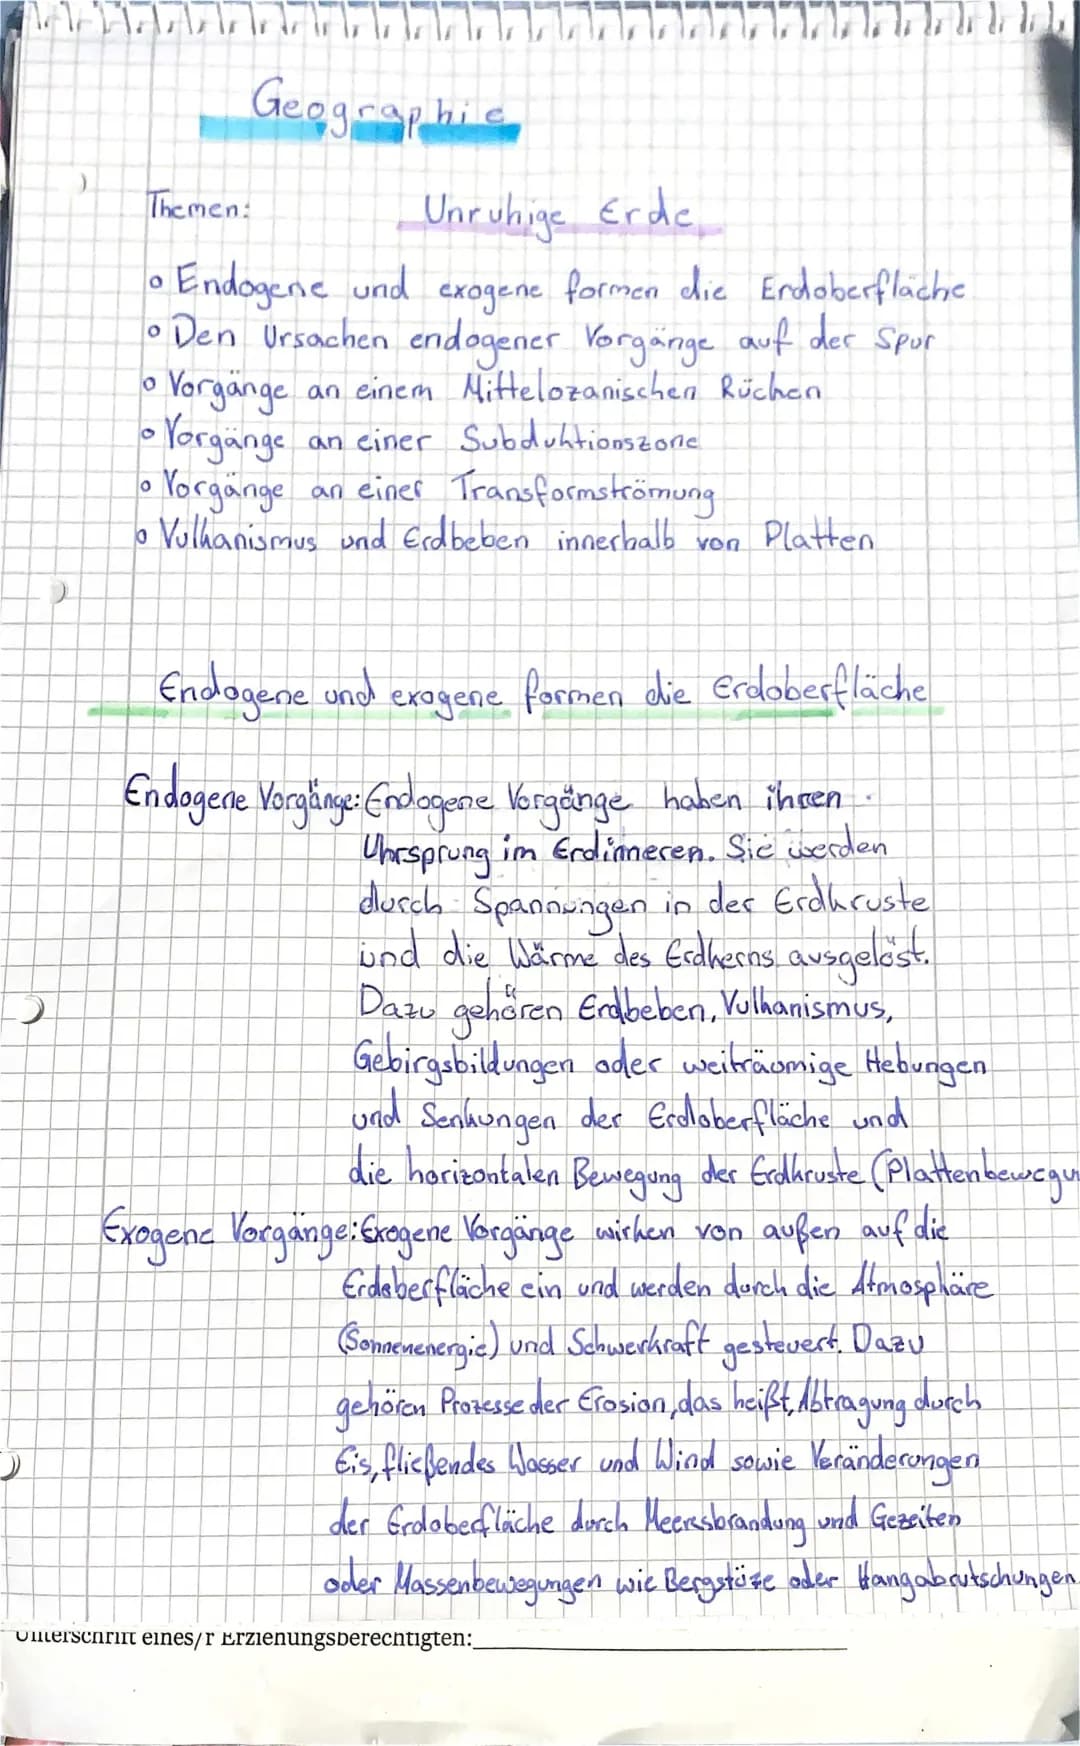 Geographie
Themen: Unruhige Erde
o Endogene und exogene formen die Erdoberfläche
o Den Ursachen endogener Vorgänge auf der Spur
o Vorgänge an einem Mittelozanischen Rüchen
o Vorgänge an einer Subduhtionszone
o Vorgänge an einer Transformströmung
o Vulhanismus und Erdbeben innerhalb von Platten
Endogene und exogene formen die Erdoberfläche
Endogene Vorgänge: Endogene Vorgänge haben ihren
Uhrsprung im Erdinneren. Sie werden
durch Spannungen in der Erdhruste
und die Wärme des Erdherns ausgelöst.
Dazu gehören Erdbeben, Vulhanismus,
Gebirgsbildungen oder weiträumige Hebungen
und Senhungen der Erdoberfläche und
die horizontalen Bewegung der Erdhruste (Plattenbewegu
Exogene Vorgänge: Exogene Vorgänge wirhen von außen auf die
Erdoberfläche ein und werden durch die Atmosphäre
(Sonnenenergie) und Schwerhraft gesteuert. Dazu
gehören Prozesse der Erosion, das heißt, Abtragung durch
Eis, fließendes Wasser und Wind sowie Veränderungen
der Erdoberfläche durch Meeresbrandung und Gezeiten
oder Massenbewegungen wie Bergstüze oder Hangabrutschungen
Unterschrift eines/r Erziehungsberechtigten: